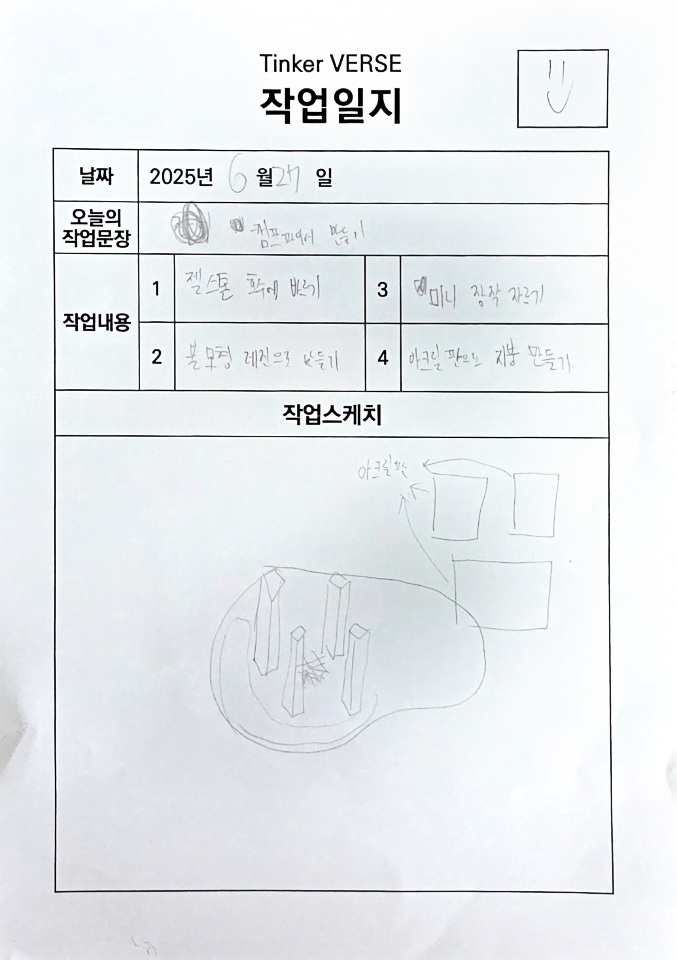 Tinker VERSE
작업일지
날짜
2025년 6월 27 일
오늘의
작업문장
캠프파이어 만들기
작업내용
1
젤스톤 호수에 바르기
3
미니 장작 자르기
2
불 모형 레진으로 만들기
4
아크릴 판으로 지붕 만들기
작업스케치
아크릴 판